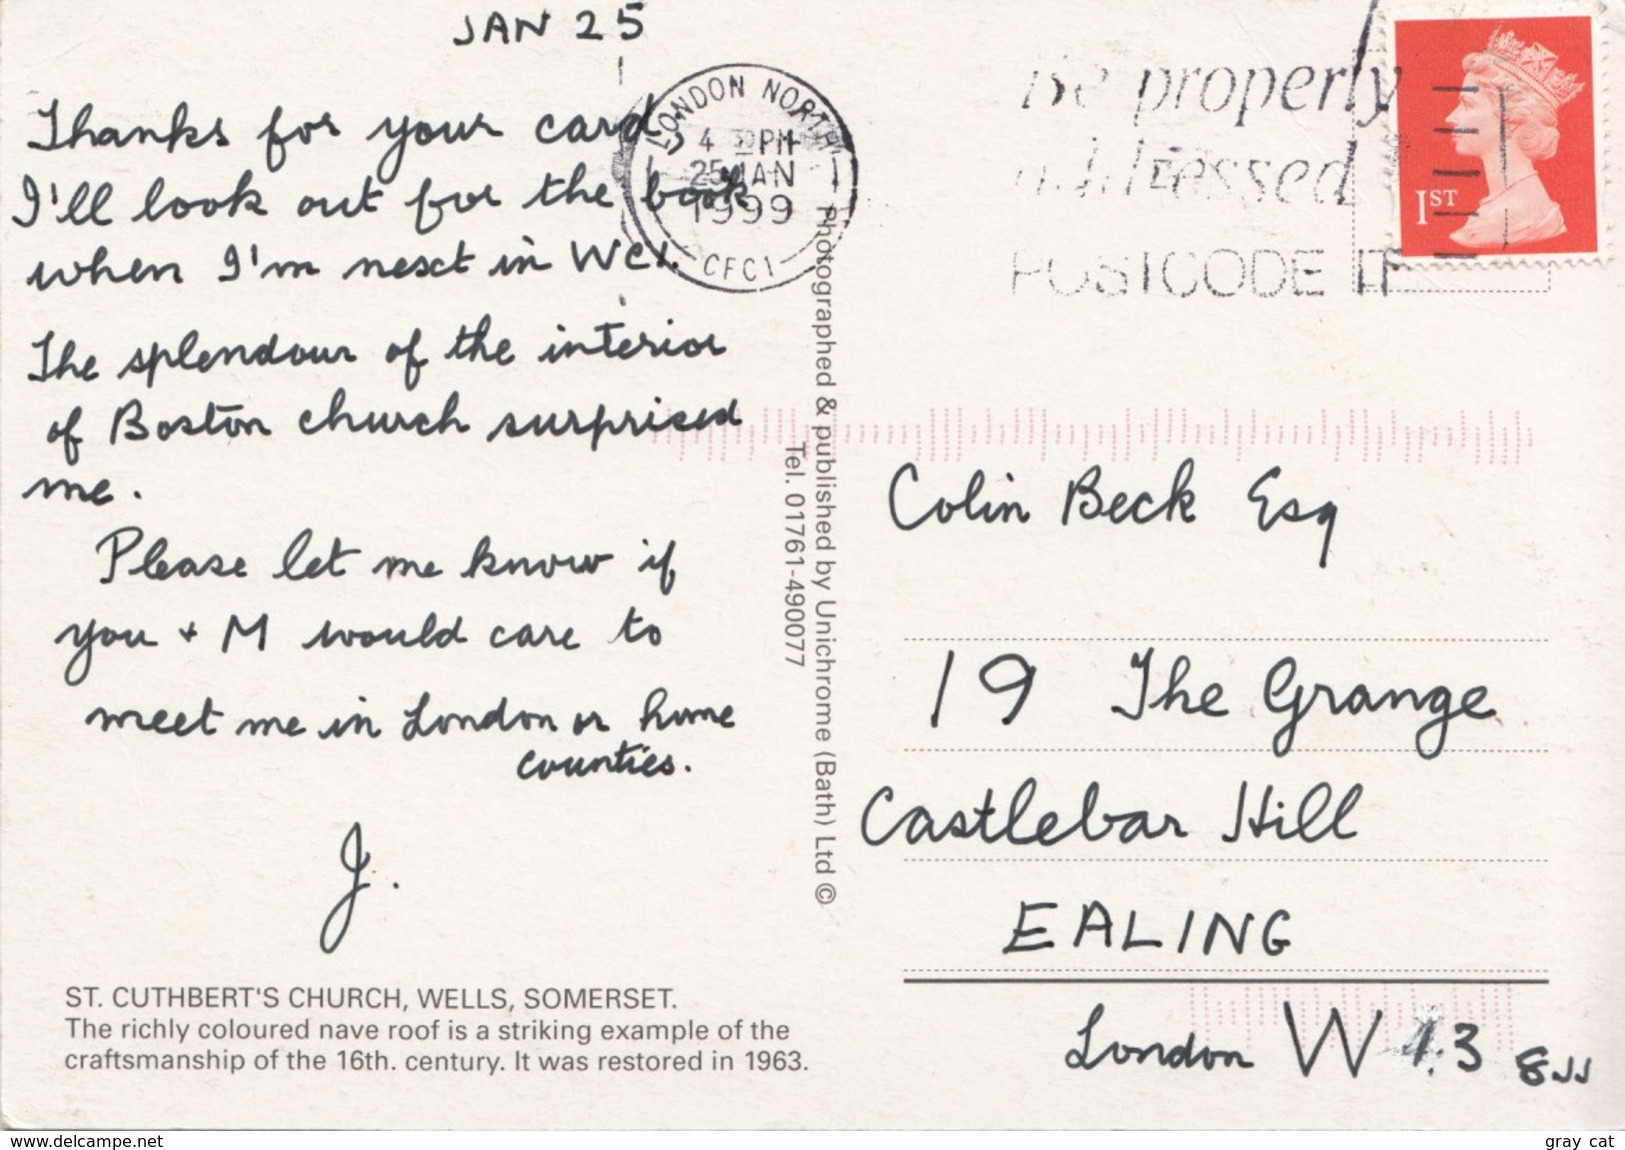 JAN 25
Thanks for your card
I'll look out for the book
when I'm next in WC1.
The splendour of the interior
of Boston church surprised
me.
Please let me know if
you + M would care to
meet me in London or home
counties.
J.
ST. CUTHBERT'S CHURCH, WELLS, SOMERSET.
The richly coloured nave roof is a striking example of the
craftsmanship of the 16th. century. It was restored in 1963.
Photographed & published by Unichrome (Bath) Ltd ©
Tel. 01761-490077
LONDON NORTH
4 30 PM
25 JAN
1999
CFC1
Be properly
addressed
POSTCODE IT
1ST
Colin Beck Esq
19 The Grange
Castlebar Hill
EALING
London W13 8JJ
www.delcampe.net
gray cat